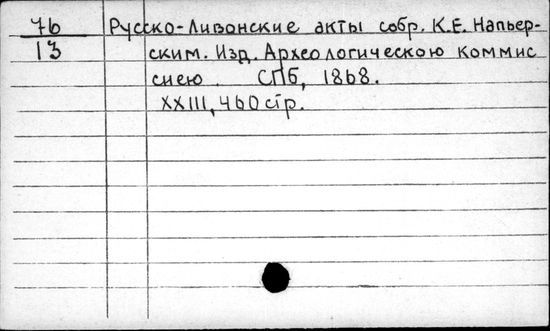 76 Русско-Ливонские акты собр. К.Е. Напьер-
13 ским. Изд. Археологическою коммис
сиею. СПб, 1868.
XXIII, 460 стр.